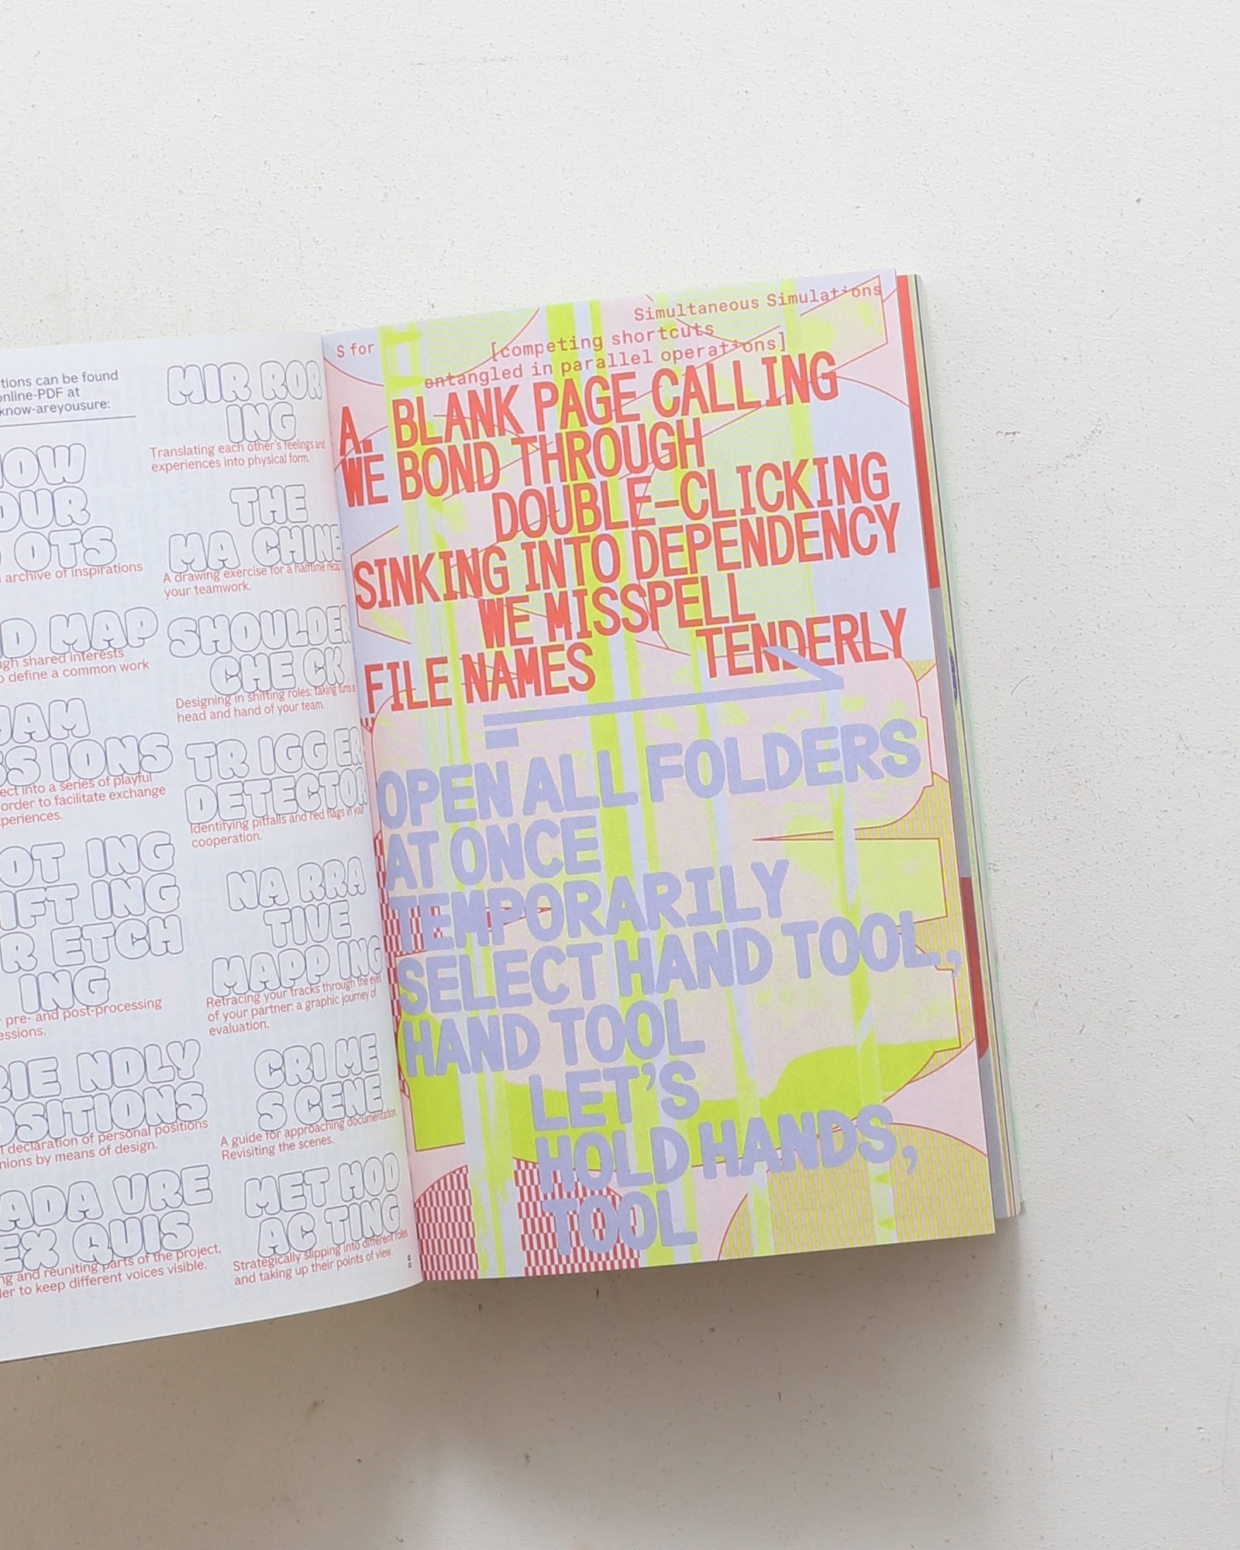 tions can be found
online-PDF at
know-areyousure:
OW
OUR
OTS
archive of inspirations
D MAP
gh shared interests
o define a common work
JAM
S IONS
ect into a series of playful
order to facilitate exchange
periences.
OT ING
IFT ING
R ETCH
ING
pre- and post-processing
essions.
IE NDLY
OSITIONS
declaration of personal positions
nions by means of design.
ADA VRE
EX QUIS
ng and reuniting parts of the project,
der to keep different voices visible.
MIR ROR
ING
Translating each other's feelings and
experiences into physical form.
THE
MA CHINE
A drawing exercise for a halftime recap
your teamwork.
SHOULDER
CHE CK
Designing in shifting roles: taking turns a
head and hand of your team.
TR IGG ER
DETECTOR
Identifying pitfalls and red flags in your
cooperation.
NA RRA
TIVE
MAPP ING
Retracing your tracks through the eyes
of your partner: a graphic journey of
evaluation.
CRI ME
S CENE
A guide for approaching documentation.
Revisiting the scenes.
MET HOD
AC TING
Strategically slipping into different roles
and taking up their points of view.
S for
Simultaneous Simulations
[competing shortcuts
entangled in parallel operations]
A. BLANK PAGE CALLING
WE BOND THROUGH
DOUBLE-CLICKING
SINKING INTO DEPENDENCY
WE MISSPELL
TENDERLY
FILE NAMES
OPEN ALL FOLDERS
AT ONCE
TEMPORARILY
SELECT HAND TOOL,
HAND TOOL
LET'S
HOLD HANDS,
TOOL